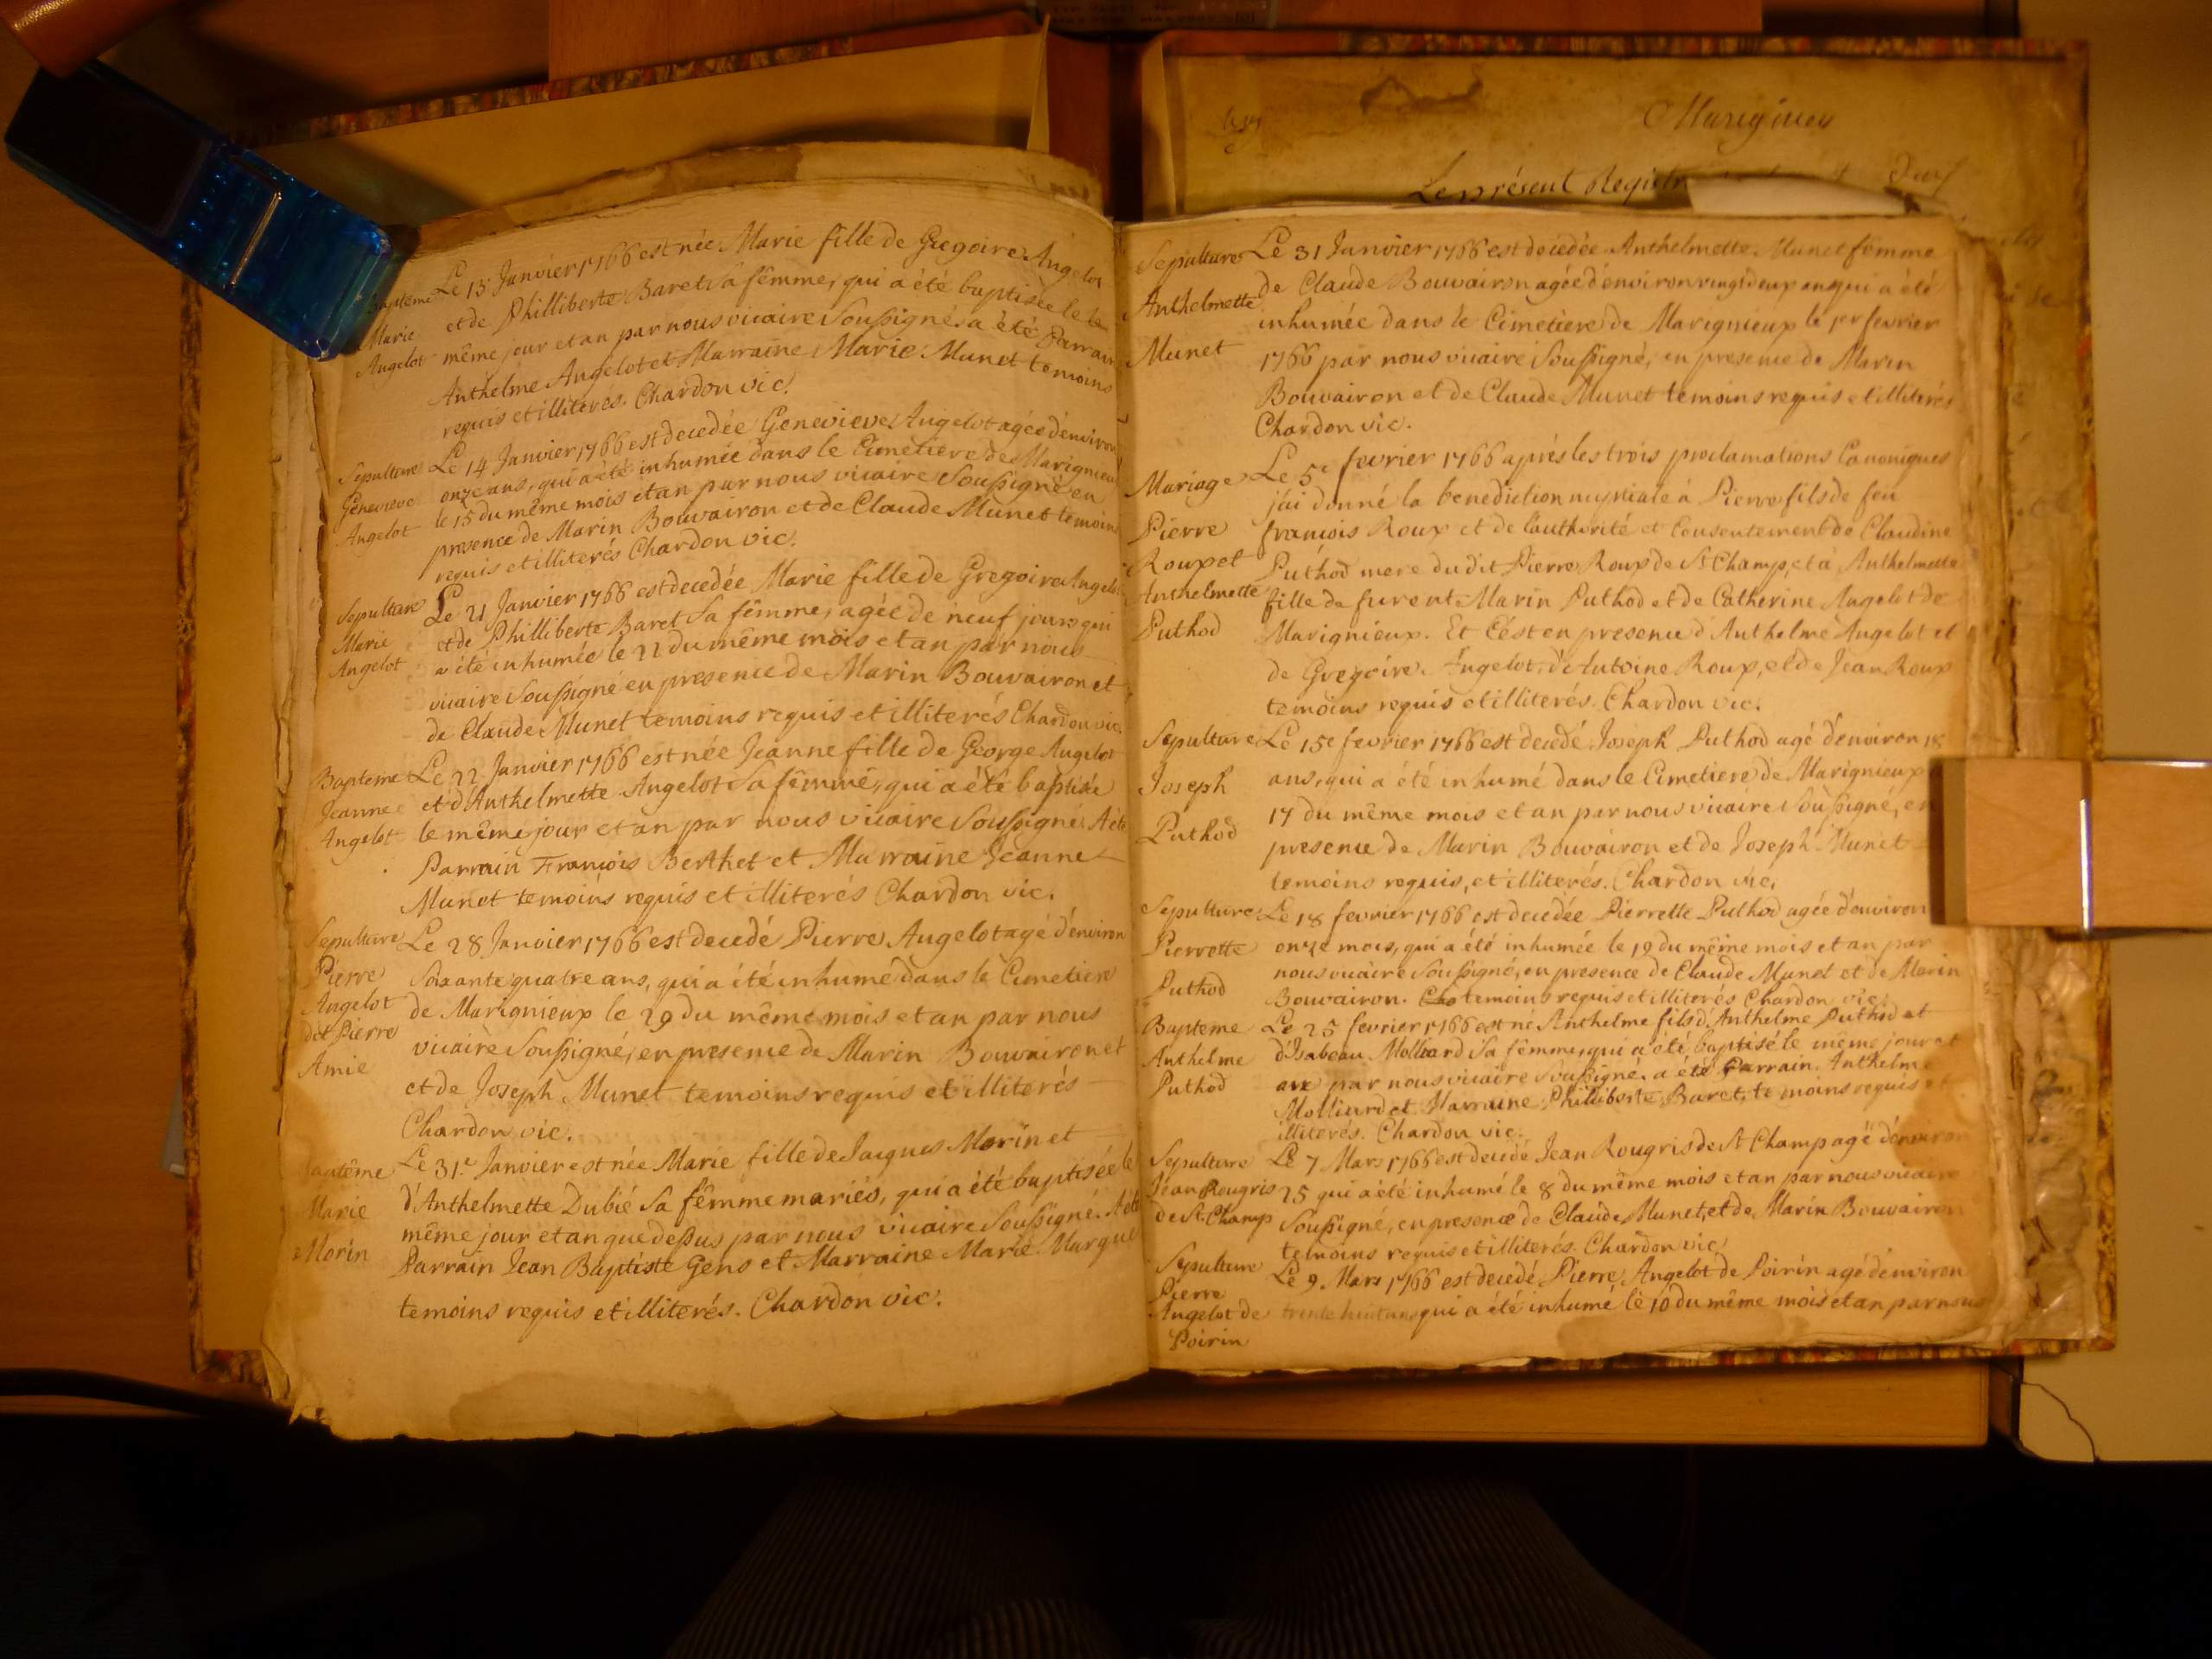 Baptême Le 13 Janvier 1766 est née Marie fille de Gregoire Angelot
Marie et de Philliberte Baret sa fêmme, qui a été baptisée le le
Angelot même jour et an par nous vicaire soussigné. a été Parrain
Anthelme Angelot et Marraine Marie Munet temoins
requis et illiterés. Chardon vic.
Sepulture Le 14 Janvier 1766 est decedée Genevieve Angelot agée d'environ
Genevieve onze ans, qui a été inhumée dans le Cimetiere de Marignieux
Angelot le 15 du même mois et an par nous vicaire soussigné en
presence de Marin Bouvairon et de Claude Munet temoins
requis et illiterés Chardon vic.
Sepulture Le 21 Janvier 1766 est decedée Marie fille de Gregoire Angelot
Marie et de Philliberte Baret sa fêmme, agée de neuf jours qui
Angelot a été inhumée le 22 du même mois et an par nous
vicaire soussigné en presence de Marin Bouvairon et
de Claude Munet temoins requis et illiterés Chardon vic.
Bapteme Le 22 Janvier 1766 est née Jeanne fille de George Angelot
Jeanne et d'Anthelmette Angelot sa fêmme, qui a été baptisée
Angelot le même jour et an par nous vicaire soussigné. A été
Parrain François Berthet et Marraine Jeanne
Munet temoins requis et illiterés Chardon vic.
Sepulture Le 28 Janvier 1766 est decedé Pierre Angelot agé d'environ
Pierre soixante quatre ans, qui a été inhumé dans le Cimetiere
Angelot de Marignieux le 29 du même mois et an par nous
dit Pierre vicaire soussigné, en presence de Marin Bouvairon et
Amie et de Joseph Munet temoins requis et illiterés
Chardon vic.
Baptême Le 31.e Janvier est née Marie fille de Jacques Morin et
Marie d'Anthelmette Dubié sa fêmme mariés, qui a été baptisée le
Morin même jour et an que dessus par nous vicaire soussigné. A été
Parrain Jean Baptiste Gens et Marraine Marie
temoins requis et illiterés. Chardon vic.
Marignieu
Le présent Registre
Sepulture Le 31 Janvier 1766 est decedée Anthelmette Munet fêmme
Anthelmette de Claude Bouvairon agée d'environ vingt deux ans qui a été
Munet inhumée dans le Cimetiere de Marignieux le pr fevrier
1766 par nous vicaire soussigné, en presence de Marin
Bouvairon et de Claude Munet temoins requis et illiterés
Chardon vic.
Mariage Le 5e fevrier 1766 aprés les trois proclamations Canoniques
Pierre j'ai donné la benediction nuptiale à Pierre fils de feu
Roux et françois Roux et de l'authorité et Consentement de Claudine
Anthelmette Puthod mere du dit Pierre Roux de St Champ, et à Anthelmette
Puthod fille de furent Marin Puthod et de Catherine Angelot de
Marignieux. Et C'est en presence d'Anthelme Angelot et
de Gregoire Angelot, d'Antoine Roux, et de Jean Roux
temoins requis et illiterés. Chardon vic.
Sepulture Le 15e fevrier 1766 est decedé Joseph Puthod agé d'environ 18
Joseph ans, qui a été inhumé dans le Cimetiere de Marignieux
Puthod 17 du même mois et an par nous vicaire soussigné, en
presence de Marin Bouvairon et de Joseph Munet
temoins requis, et illiterés. Chardon vic.
Sepulture Le 18 fevrier 1766 est decedée Pierrette Puthod agée d'environ
Pierrette onze mois, qui a été inhumée le 19 du même mois et an par
Puthod nous vicaire soussigné, en presence de Claude Munet et de Marin
Bouvairon. Cha temoins requis et illiterés Chardon vic.
Bapteme Le 25 fevrier 1766 est né Anthelme fils d'Anthelme Puthod et
Anthelme d'Isabeau Molliard sa fêmme, qui a été baptisé le même jour et
Puthod an par nous vicaire soussigné. a été Parrain Anthelme
Molliard et Marraine Philliberte Baret, temoins requis et
illiterés. Chardon vic.
Sepulture Le 7 Mars 1766 est decedé Jean Rougris de St Champ agé d'environ
Jean Rougris 25 qui a été inhumé le 8 du même mois et an par nous vicaire
de St. Champ soussigné, en presence de Claude Munet, et de Marin Bouvairon
temoins requis et illiterés. Chardon vic.
Sepulture Le 9. Mars 1766 est decedé Pierre Angelot de Poirin agé d'environ
Pierre
Angelot de trente huit ans qui a été inhumé le 10 du même mois et an par nous
Poirin